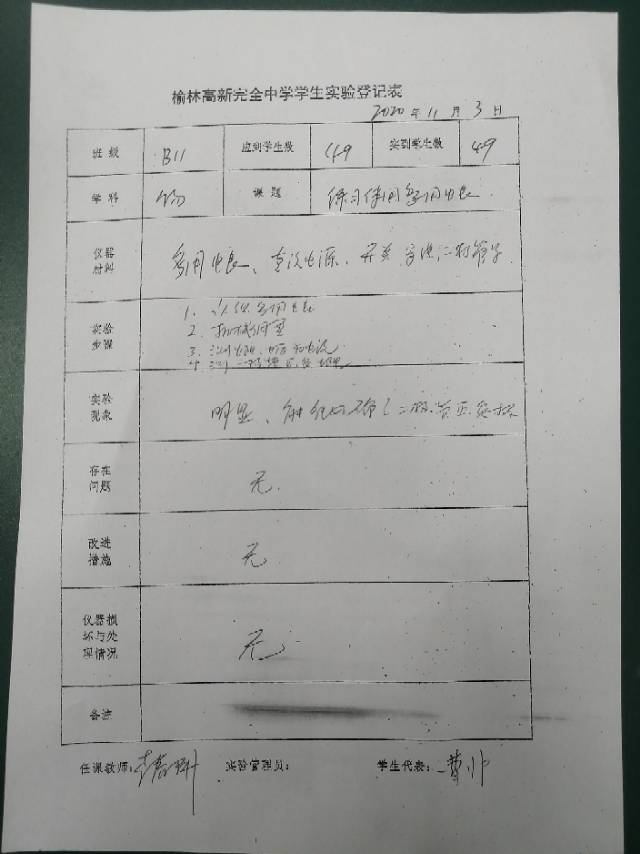 榆林高新完全中学学生实验登记表
2020年11月3日
班级 B11 应到学生数 49 实到学生数 49
学科 物 课题 练习使用多用电表
仪器材料 多用电表、直流电源、开关 二极管
实验步骤 1. 认识多用电表
2.
3. 测电阻、电压和电流
4. 测二极管
实验现象 明显、
存在问题 无
改进措施 无
仪器损坏与处理情况 无
备注
任课教师: 实验管理员: 学生代表: 曹帅